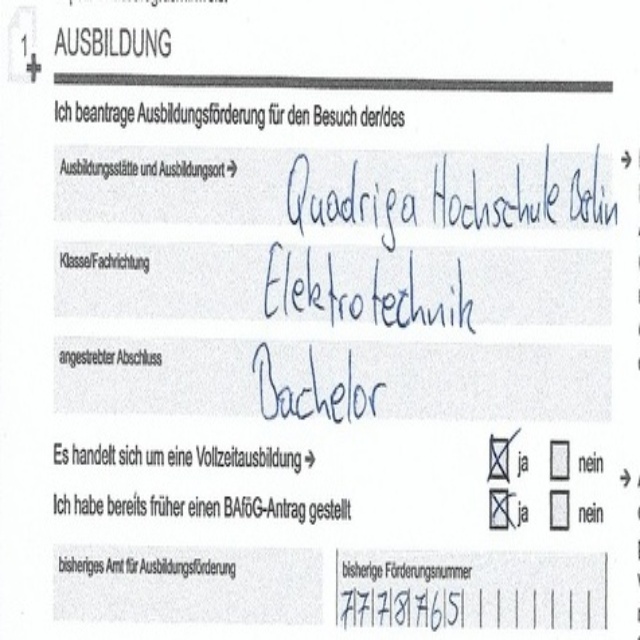 1 AUSBILDUNG
Ich beantrage Ausbildungsförderung für den Besuch der/des
Ausbildungsstätte und Ausbildungsort → Quadriga Hochschule Berlin
Klasse/Fachrichtung Elektrotechnik
angestrebter Abschluss Bachelor
Es handelt sich um eine Vollzeitausbildung → ja nein
Ich habe bereits früher einen BAföG-Antrag gestellt ja nein
bisheriges Amt für Ausbildungsförderung bisherige Förderungsnummer
7778765